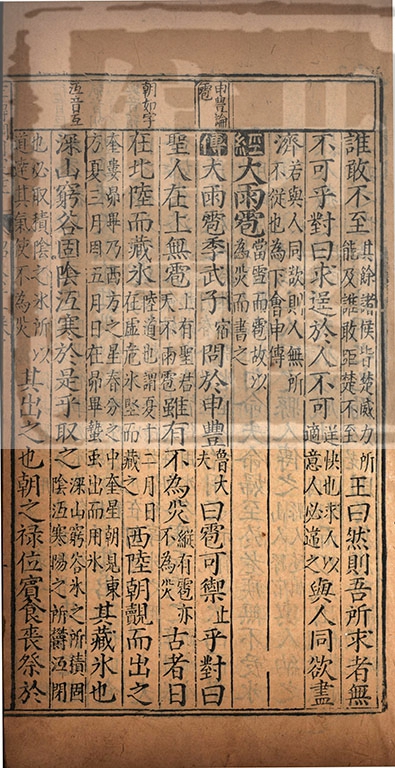 申豐論
雹
朝如字
沍音互
誰敢不至其餘諸侯皆楚威力所能及誰敢距楚不至王曰然則吾所求者無
不可乎對曰求逞於人不可逞快也求人以適意人必違之與人同欲盡
濟若與人同欲則人無所不從也為下會申傳
經大雨雹當雪而雹故以為災而書之
傳大雨雹季武子宿問於申豐魯大夫曰雹可禦止乎對曰
聖人在上無雹上有聖君天不雨雹雖有不為災縱有雹亦不為災古者日
在北陸而藏氷陸道也謂夏十二月日在虛危氷堅而藏之西陸朝覿而出之
奎婁昴畢乃西方之星春分之中奎星朝見東方夏三月周五月日在昴畢蟄虫出而用氷其藏氷也
深山窮谷固陰沍寒於是乎取之深山窮谷氷之所積固陰沍寒陽之所沍閉
也必取積陰之氷所以道達其氣使不為災其出之也朝之祿位賓食喪祭於